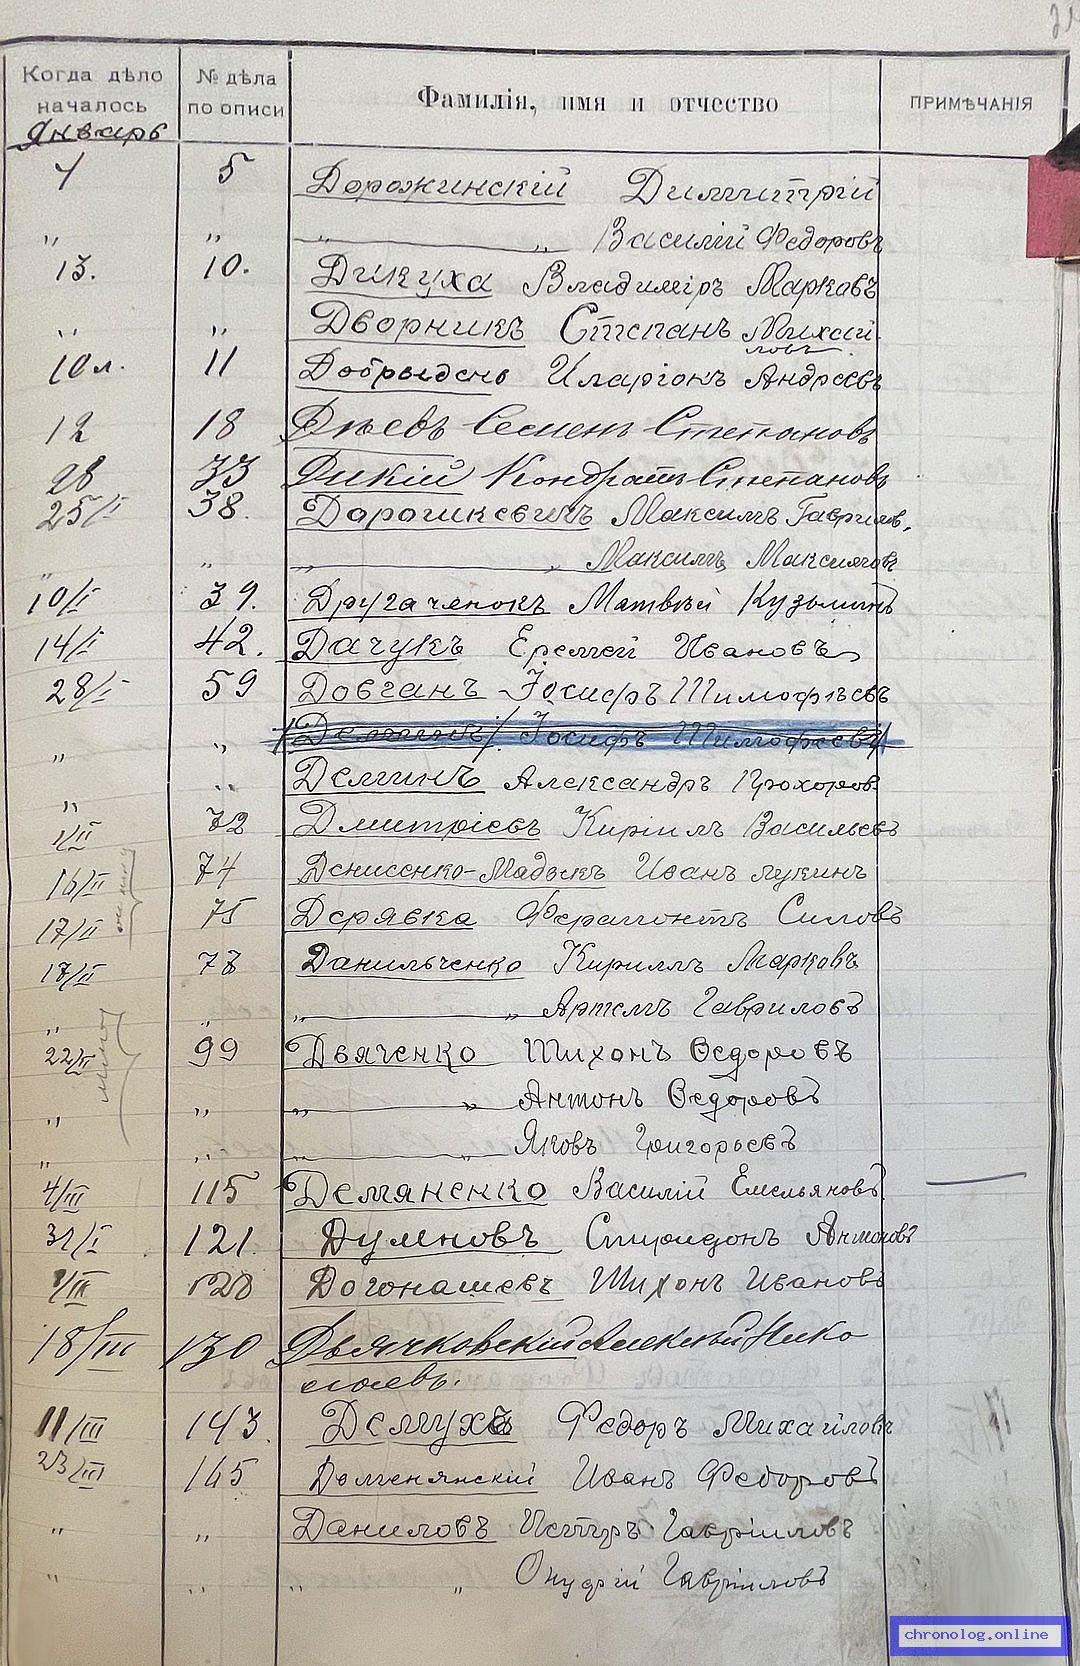 Когда дѣло № дѣла Фамилія, имя и отчество ПРИМѢЧАНІЯ
началось по описи
Январь
4 5 Дорожинскій Димитрій
„ „ „ „ Василій Федоровъ
13. 10. Дикуха Владиміръ Марковъ
„ „ Дворникъ Степанъ Михай
ловъ
10 л. 11 Добрыдень Иларіонъ Андреевъ
12 18 Дѣевъ Семенъ Степановъ
28 33 Дикій Кондратъ Степановъ
25/I 38. Дорошкевичъ Максимъ Гаврилов.
„ „ „ „ Максимъ Максимовъ
10/I 39. Другаченокъ Матвѣй Кузьминъ
14/I 42. Дачукъ Еремей Ивановъ
28/I 59 Довганъ Іосифъ Тимофѣевъ
„ „ Іосифъ Тимофеевъ
„ „ Демчинъ Александръ Прохоров
1/II 72 Дмитріевъ Киріилъ Васильевъ
16/II 74 Денисенко-Мадыкъ Иванъ Лукинъ
17/II 75 Дерявка Ферапонтъ Силовъ
17/II 78 Данильченко Кириллъ Марковъ
„ „ „ „ Артемъ Гавриловъ
22/II 99 Дьяченко Тихонъ Ѳедоровъ
„ „ „ „ Антонъ Ѳедоровъ
„ „ „ „ Яковъ Григорьевъ
4/III 115 Демяненко Василій Емельяновъ
31/I 121. Думновъ Спиридонъ Антоновъ
1/III 128 Догонашевъ Тихонъ Ивановъ
18/III 130 Дьячковскій Алексѣй Нико
лаевъ.
11/III 143. Демуха Федоръ Михайловъ
23/III 145 Доменянскій Иванъ Федоровъ
„ „ Даниловъ Петръ Гавріиловъ
„ „ „ „ Онуфрій Гавріиловъ
chronolog.online